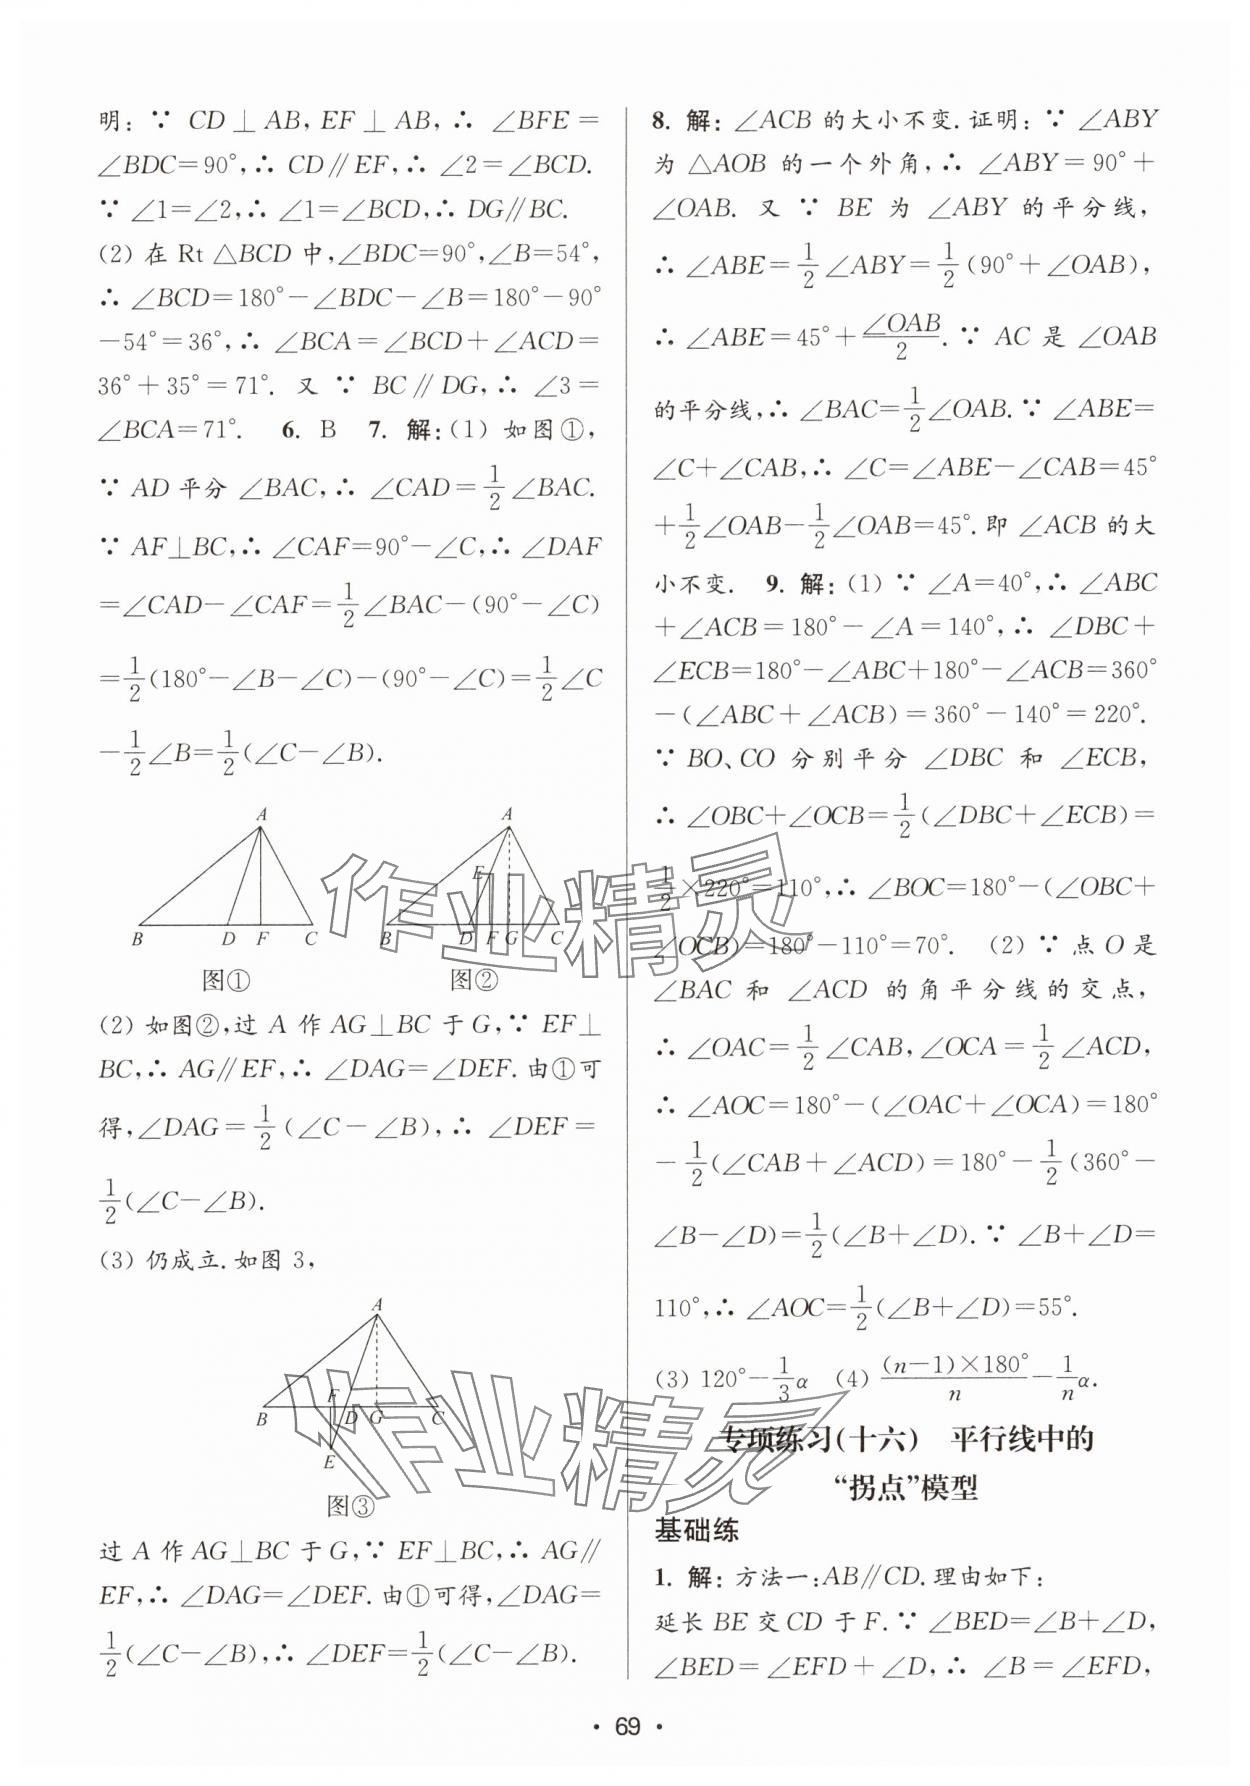 明: ∵ CD⊥AB, EF⊥AB, ∴ ∠BFE=
∠BDC=90°, ∴ CD∥EF, ∴ ∠2=∠BCD.
∵ ∠1=∠2, ∴ ∠1=∠BCD, ∴ DG∥BC.
(2) 在 Rt △BCD 中, ∠BDC=90°, ∠B=54°,
∴ ∠BCD=180°-∠BDC-∠B=180°-90°
-54°=36°, ∴ ∠BCA=∠BCD+∠ACD=
36°+35°=71°. 又 ∵ BC∥DG, ∴ ∠3=
∠BCA=71°. 6. B 7. 解: (1) 如图①,
∵ AD 平分 ∠BAC, ∴ ∠CAD=1/2∠BAC.
∵ AF⊥BC, ∴ ∠CAF=90°-∠C, ∴ ∠DAF
=∠CAD-∠CAF=1/2∠BAC-(90°-∠C)
=1/2(180°-∠B-∠C)-(90°-∠C)=1/2∠C
-1/2∠B=1/2(∠C-∠B).
A
B D F C
图①
A
E
B D F G C
图②
(2) 如图②, 过 A 作 AG⊥BC 于 G, ∵ EF⊥
BC, ∴ AG∥EF, ∴ ∠DAG=∠DEF. 由①可
得, ∠DAG=1/2(∠C-∠B), ∴ ∠DEF=
1/2(∠C-∠B).
(3) 仍成立. 如图 3,
A
F
B D G C
E
图③
过 A 作 AG⊥BC 于 G, ∵ EF⊥BC, ∴ AG∥
EF, ∴ ∠DAG=∠DEF. 由①可得, ∠DAG=
1/2(∠C-∠B), ∴ ∠DEF=1/2(∠C-∠B).
8. 解: ∠ACB 的大小不变. 证明: ∵ ∠ABY
为 △AOB 的一个外角, ∴ ∠ABY=90°+
∠OAB. 又 ∵ BE 为 ∠ABY 的平分线,
∴ ∠ABE=1/2∠ABY=1/2(90°+∠OAB),
∴ ∠ABE=45°+∠OAB/2. ∵ AC 是 ∠OAB
的平分线, ∴ ∠BAC=1/2∠OAB. ∵ ∠ABE=
∠C+∠CAB, ∴ ∠C=∠ABE-∠CAB=45°
+1/2∠OAB-1/2∠OAB=45°. 即 ∠ACB 的大
小不变. 9. 解: (1) ∵ ∠A=40°, ∴ ∠ABC
+∠ACB=180°-∠A=140°, ∴ ∠DBC+
∠ECB=180°-∠ABC+180°-∠ACB=360°
-(∠ABC+∠ACB)=360°-140°=220°.
∵ BO、CO 分别平分 ∠DBC 和 ∠ECB,
∴ ∠OBC+∠OCB=1/2(∠DBC+∠ECB)=
1/2×220°=110°, ∴ ∠BOC=180°-(∠OBC+
∠OCB)=180°-110°=70°. (2) ∵ 点 O 是
∠BAC 和 ∠ACD 的角平分线的交点,
∴ ∠OAC=1/2∠CAB, ∠OCA=1/2∠ACD,
∴ ∠AOC=180°-(∠OAC+∠OCA)=180°
-1/2(∠CAB+∠ACD)=180°-1/2(360°-
∠B-∠D)=1/2(∠B+∠D). ∵ ∠B+∠D=
110°, ∴ ∠AOC=1/2(∠B+∠D)=55°.
(3) 120°-1/3α (4) (n-1)×180°/n-1/nα.
专项练习(十六) 平行线中的
“拐点”模型
基础练
1. 解: 方法一: AB∥CD. 理由如下:
延长 BE 交 CD 于 F. ∵ ∠BED=∠B+∠D,
∠BED=∠EFD+∠D, ∴ ∠B=∠EFD,
• 69 •
作业精灵
作业精灵